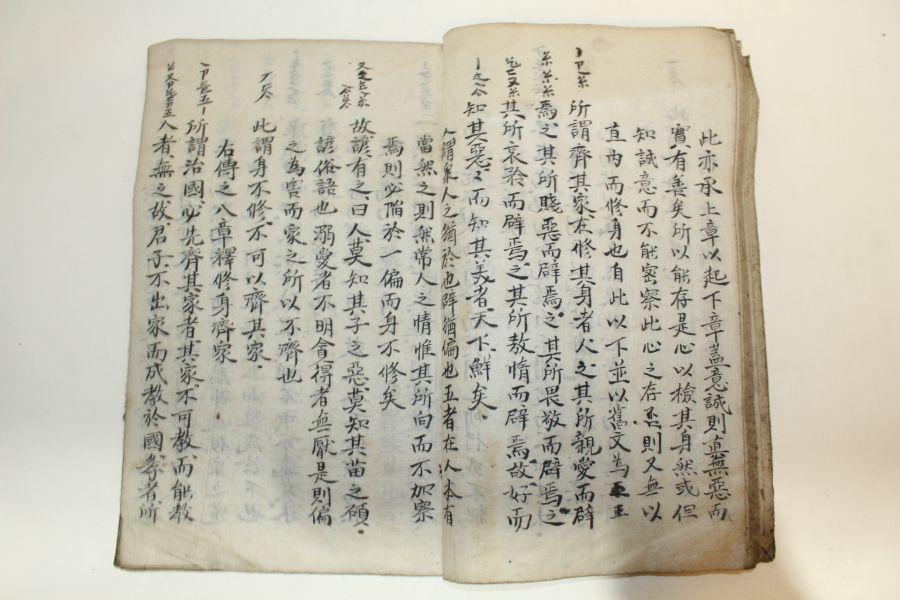 此亦承上章以起下章盖意誠則真無惡而
實有善矣所以能存是心以檢其身然或但
知誠意而不能密察此心之存否則又無以
直內而修身也自此以下並以舊文為正
所謂齊其家在修其身者人之其所親愛而辟
焉之其所賤惡而辟焉之其所畏敬而辟焉之
其所哀矜而辟焉之其所敖惰而辟焉故好而
知其惡〻而知其美者天下鮮矣
人謂衆人之猶於也辟猶偏也五者在人本有
當然之則然常人之情惟其所向而不加察
焉則必陷於一偏而身不修矣
故諺有之曰人莫知其子之惡莫知其苗之碩
諺俗語也溺愛者不明貪得者無厭是則偏
之為害而家之所以不齊也
此謂身不修不可以齊其家
右傳之八章釋修身齊家
所謂治國必先齊其家者其家不可教而能教
人者無之故君子不出家而成教於國孝者所